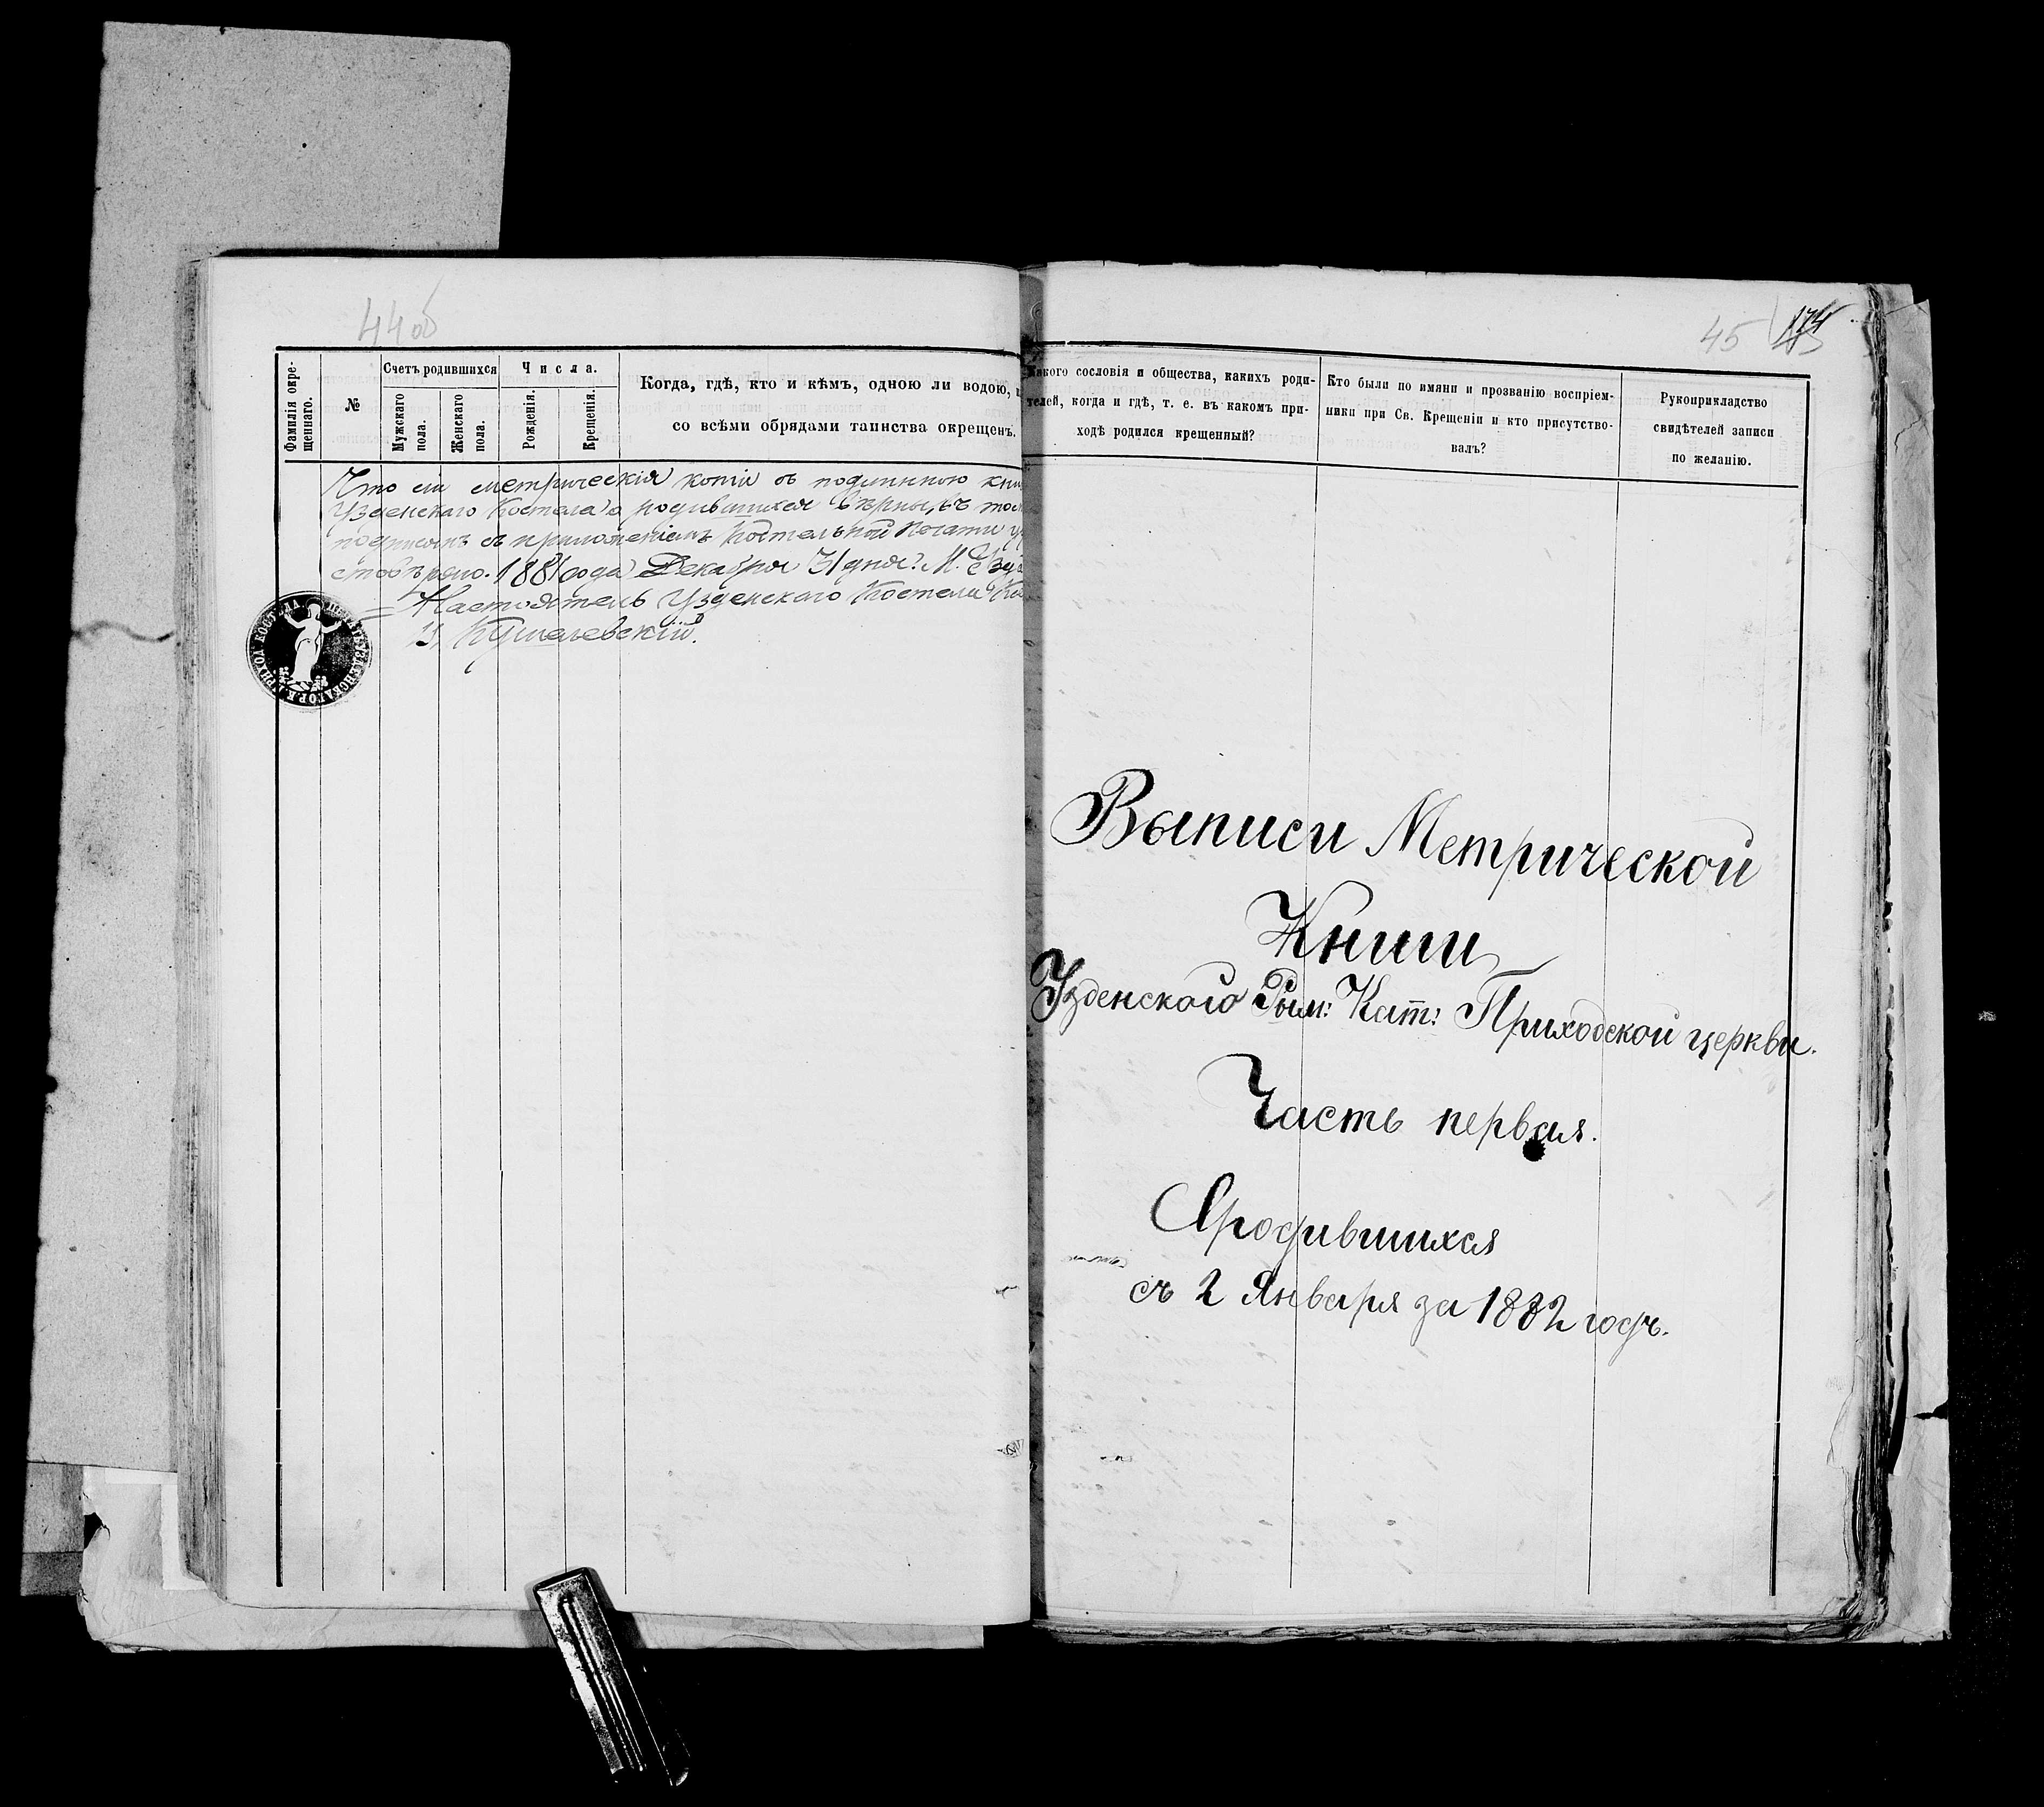 44 об
Фамилія окре-
щеннаго.
№
Счетъ родившихся
Мужскаго
пола.
Женскаго
пола.
Числа.
Рожденія.
Крещенія.
Когда, гдѣ, кто и кѣмъ, одною ли водою, и
со всѣми обрядами таинства окрещенъ.
Что сіи метрическія копіи съ подлинною кни
Узденскаго Костела о родившихся вѣрны, въ том
подписомъ съ приложеніемъ Костельной Печати у
стовѣряю. 1881 года Декабря 31 дня. М. Узд
Настоятель Узденскаго Костела
Кушелевскій.
45
174
какого сословія и общества, какихъ роди-
телей, когда и гдѣ, т. е. въ какомъ при-
ходѣ родился крещенный?
Кто были по имяни и прозванію воспріем-
ники при Св. Крещеніи и кто присутство-
валъ?
Рукоприкладство
свидѣтелей записи
по желанію.
Выписи Метрической
Книги
Узденского Рым: Кат: Приходской церкви.
Часть первая.
О родившихся
съ 2 Января за 1882 годъ.